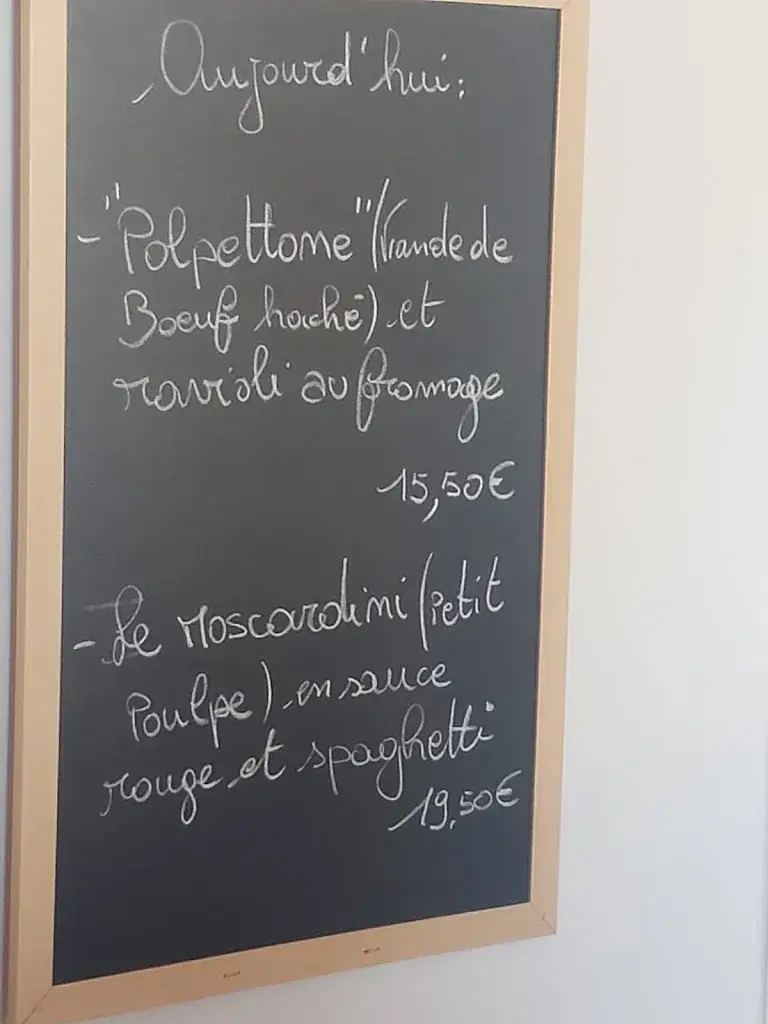 Aujourd'hui :
- "Polpettone" (Viande de
Boeuf haché) et
ravioli au fromage
15,50€
- Le Moscardini (Petit
Poulpe) en sauce
rouge et spaghetti
19,50€